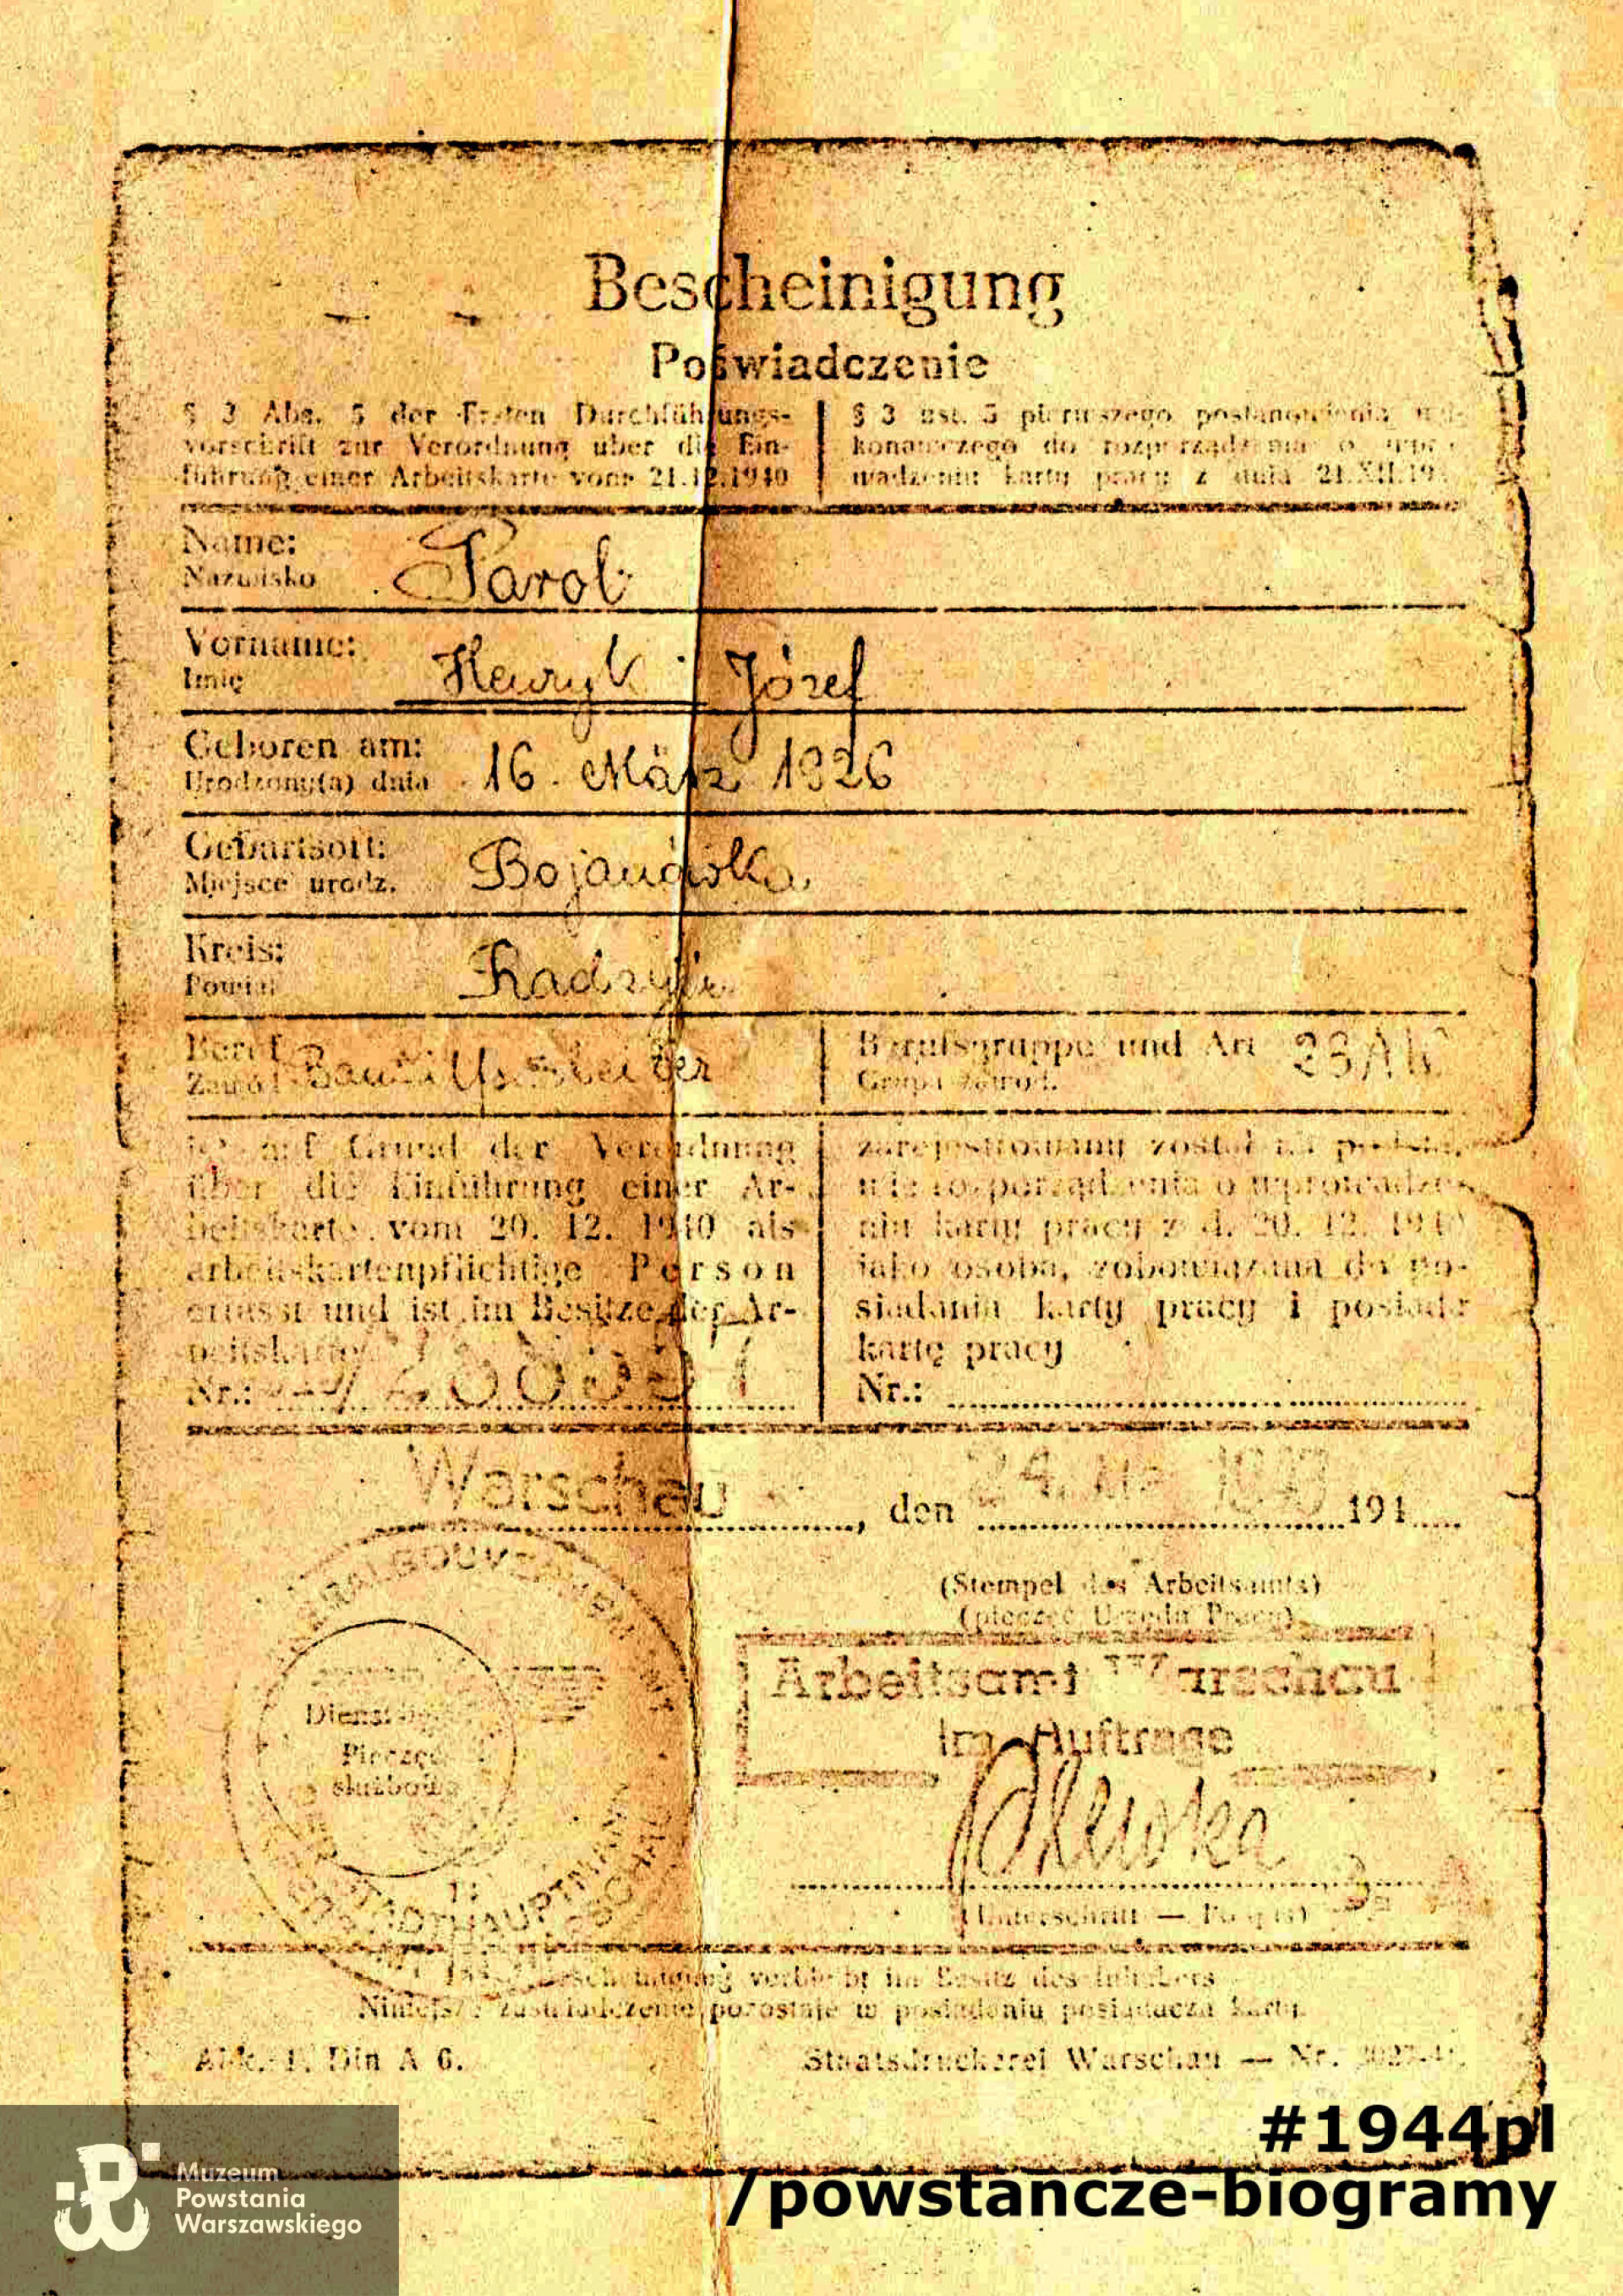 Bescheinigung
Poświadczenie
§ 3 Abs. 5 der Ersten Durchführungs-
vorschrift zur Verordnung über die Ein-
führung einer Arbeitskarte vom 21.12.1940
§ 3 ust. 5 pierwszego postanowienia wy-
konawczego do rozporządzenia o wpro-
wadzeniu karty pracy z dnia 21.XII.19
Name:
Nazwisko
Parol
Vorname:
Imię
Henryk Józef
Geboren am:
Urodzony(a) dnia
16. März 1926
Geburtsort:
Miejsce urodz.
Bojanówka
Kreis:
Powiat
Radzyń
Beruf
Zawód
Berufsgruppe und Art
Grupa zawod.
ist auf Grund der Verordnung
über die Einführung einer Ar-
beitskarte vom 20. 12. 1940 als
arbeitskartenpflichtige Person
erfasst und ist im Besitze der Ar-
beitskarte
Nr.:
zarejestrowany został na podsta-
wie rozporządzenia o wprowadze-
niu karty pracy z d. 20. 12. 1940
jako osoba, zobowiązana do po-
siadania karty pracy i posiada
kartę pracy
Nr.:
Warschau, den 24. 194
(Stempel des Arbeitsamts)
(pieczęć Urzędu Pracy)
Arbeitsamt Warschau
Im Auftrage
GENERALGOUVERNEMENT
Dienstsiegel
Pieczęć
służbowa
STADTHAUPTMANN
(Unterschrift — Podpis)
Bescheinigung verbleibt im Besitz des Inhabers
Niniejsze zaświadczenie pozostaje w posiadaniu posiadacza karty.
Din A 6.
Staatsdruckerei Warschau — Nr.
#1944pl
/powstancze-biogramy
Muzeum
Powstania
Warszawskiego